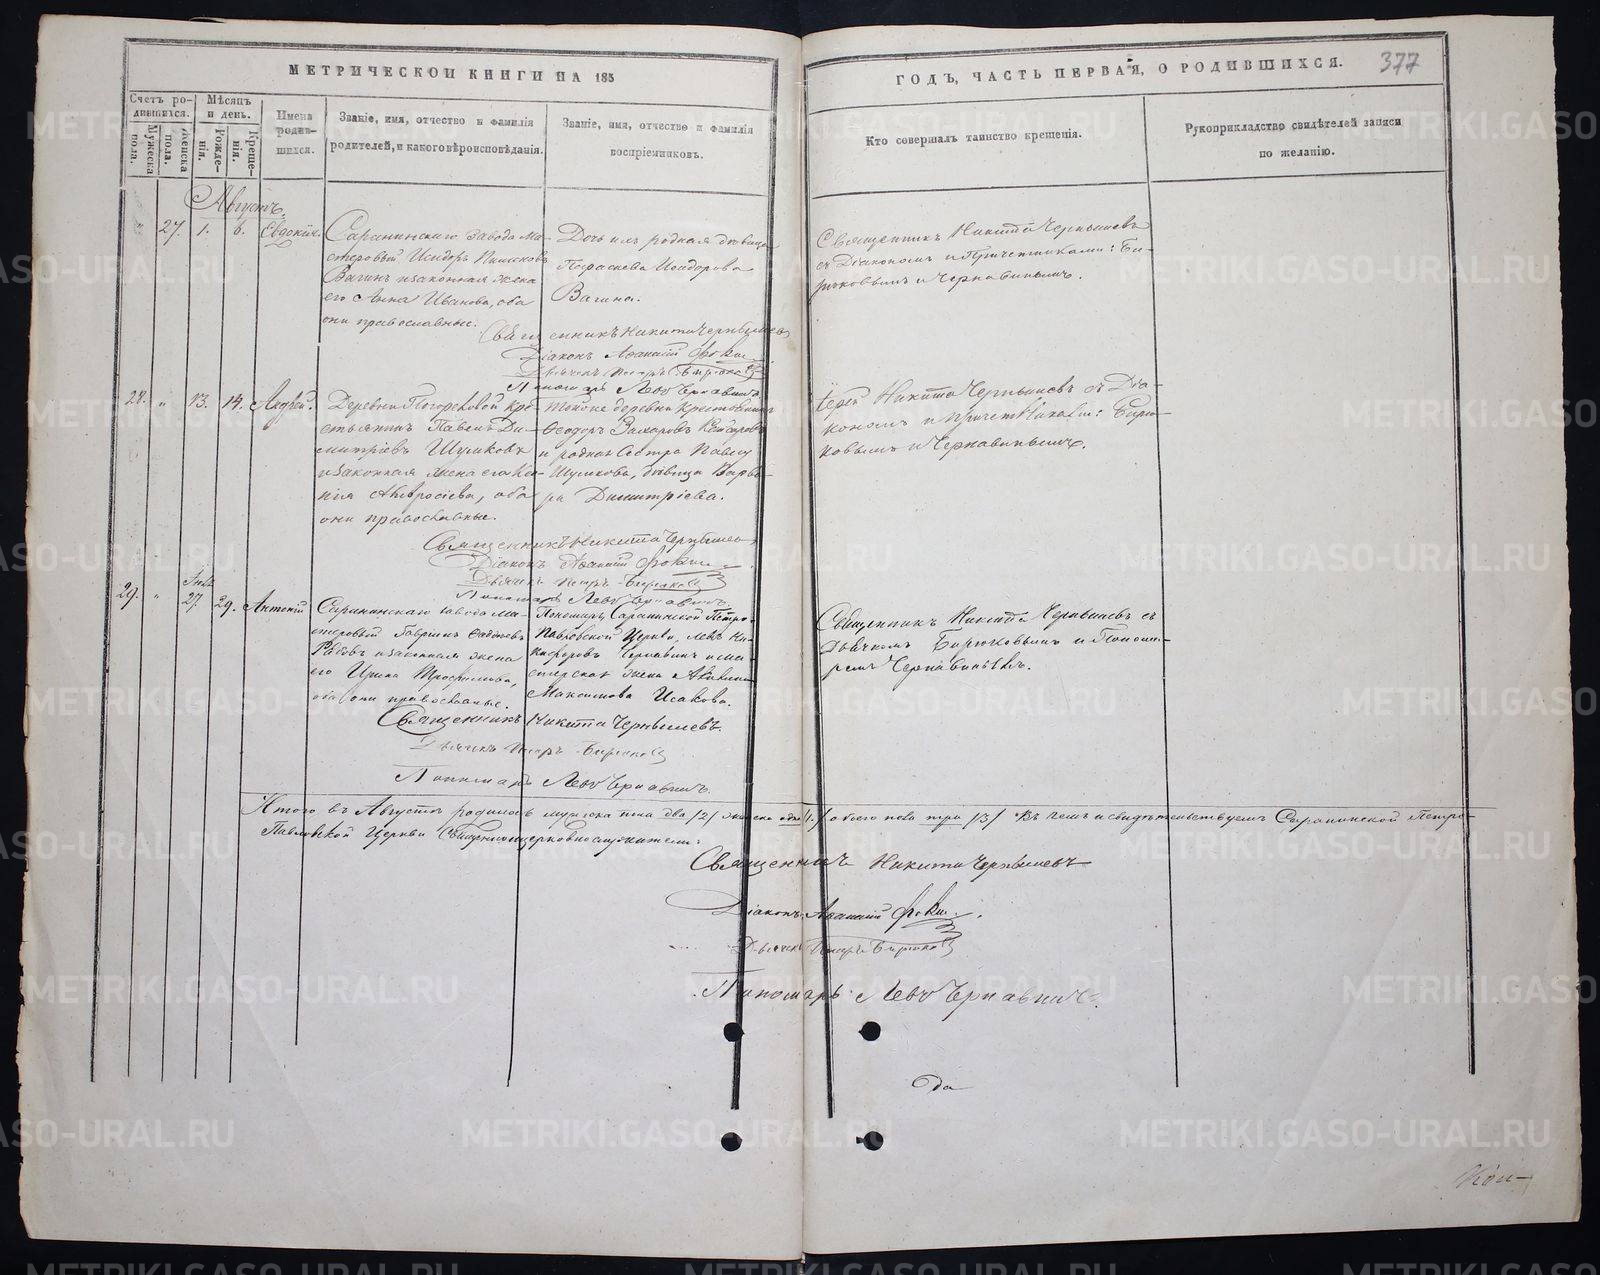 МЕТРИЧЕСКОЙ КНИГИ НА 185
ГОДЪ, ЧАСТЬ ПЕРВАЯ, О РОДИВШИХСЯ.
377
Счетъ родившихся.
Мужеска пола.
Женска пола.
Мѣсяцъ и день.
Рожденія.
Крещенія.
Имена родившихся.
Званіе, имя, отчество и фамилія
родителей, и какого вѣроисповѣданія.
Званіе, имя, отчество и фамилія
воспріемниковъ.
Кто совершалъ таинство крещенія.
Рукоприкладство свидѣтелей записи
по желанію.
Августъ
" 27. 1. 6. Евдокія.
Саранинскаго завода ма-
стеровый Исидоръ
Вагинъ и законная жена
его Анна Иванова, оба
они православные.
Дочь ихъ родная дѣвица
Параскева Исидорова
Вагина.
Священникъ Никита Чернышевъ
съ Діакономъ и Причетниками: Би-
рюковымъ и Чернавинымъ.
Священникъ Никита Чернышевъ
Діаконъ Аѳанасій
Дьячекъ Петръ Бирюковъ
Пономарь Левъ Чернавинъ
28. " 13. 14. Андрей.
Деревни Погорѣловой кре-
стьянинъ Павелъ Ди-
митріевъ Шумковъ
и законная жена его Ксе-
нія Амвросіева, оба
они православные.
Тойже деревни крестьянинъ
Ѳеодоръ Захаровъ
и родная сестра Павлу
Шумкову, дѣвица Варва-
ра Димитріева.
Іерей Никита Чернышевъ съ Діа-
кономъ и причетниками: Бирю-
ковымъ и Чернавинымъ.
Священникъ Никита Чернышевъ
Діаконъ Аѳанасій
Дьячекъ Петръ Бирюковъ
Пономарь Левъ Чернавинъ
29. " 27. 29. Антоній
Саранинскаго завода ма-
стеровый Гавріилъ
и законная жена
его Ирина Трофимова,
оба они православные.
Пономарь Саранинской Петро-
Павловской Церкви, Левъ Ни-
кифоровъ Чернавинъ и ма-
стерская жена Акилина
Максимова Исакова.
Священникъ Никита Чернышевъ съ
Дьячкомъ Бирюковымъ и Понома-
ремъ Чернавинымъ.
Священникъ Никита Чернышевъ.
Дьячекъ Петръ Бирюковъ
Пономарь Левъ Чернавинъ.
Итого въ Августѣ родилось мужска пола два /2/ женска одна /1/ обоего пола три /3/ Въ чемъ и свидѣтельствуемъ Саранинской Петро-
Павловской Церкви Священноцерковнослужители:
Священникъ Никита Чернышевъ
Діаконъ Аѳанасій
Дьячекъ Петръ Бирюковъ
Пономарь Левъ Чернавинъ.
Да
METRIKI.GASO-URAL.RU